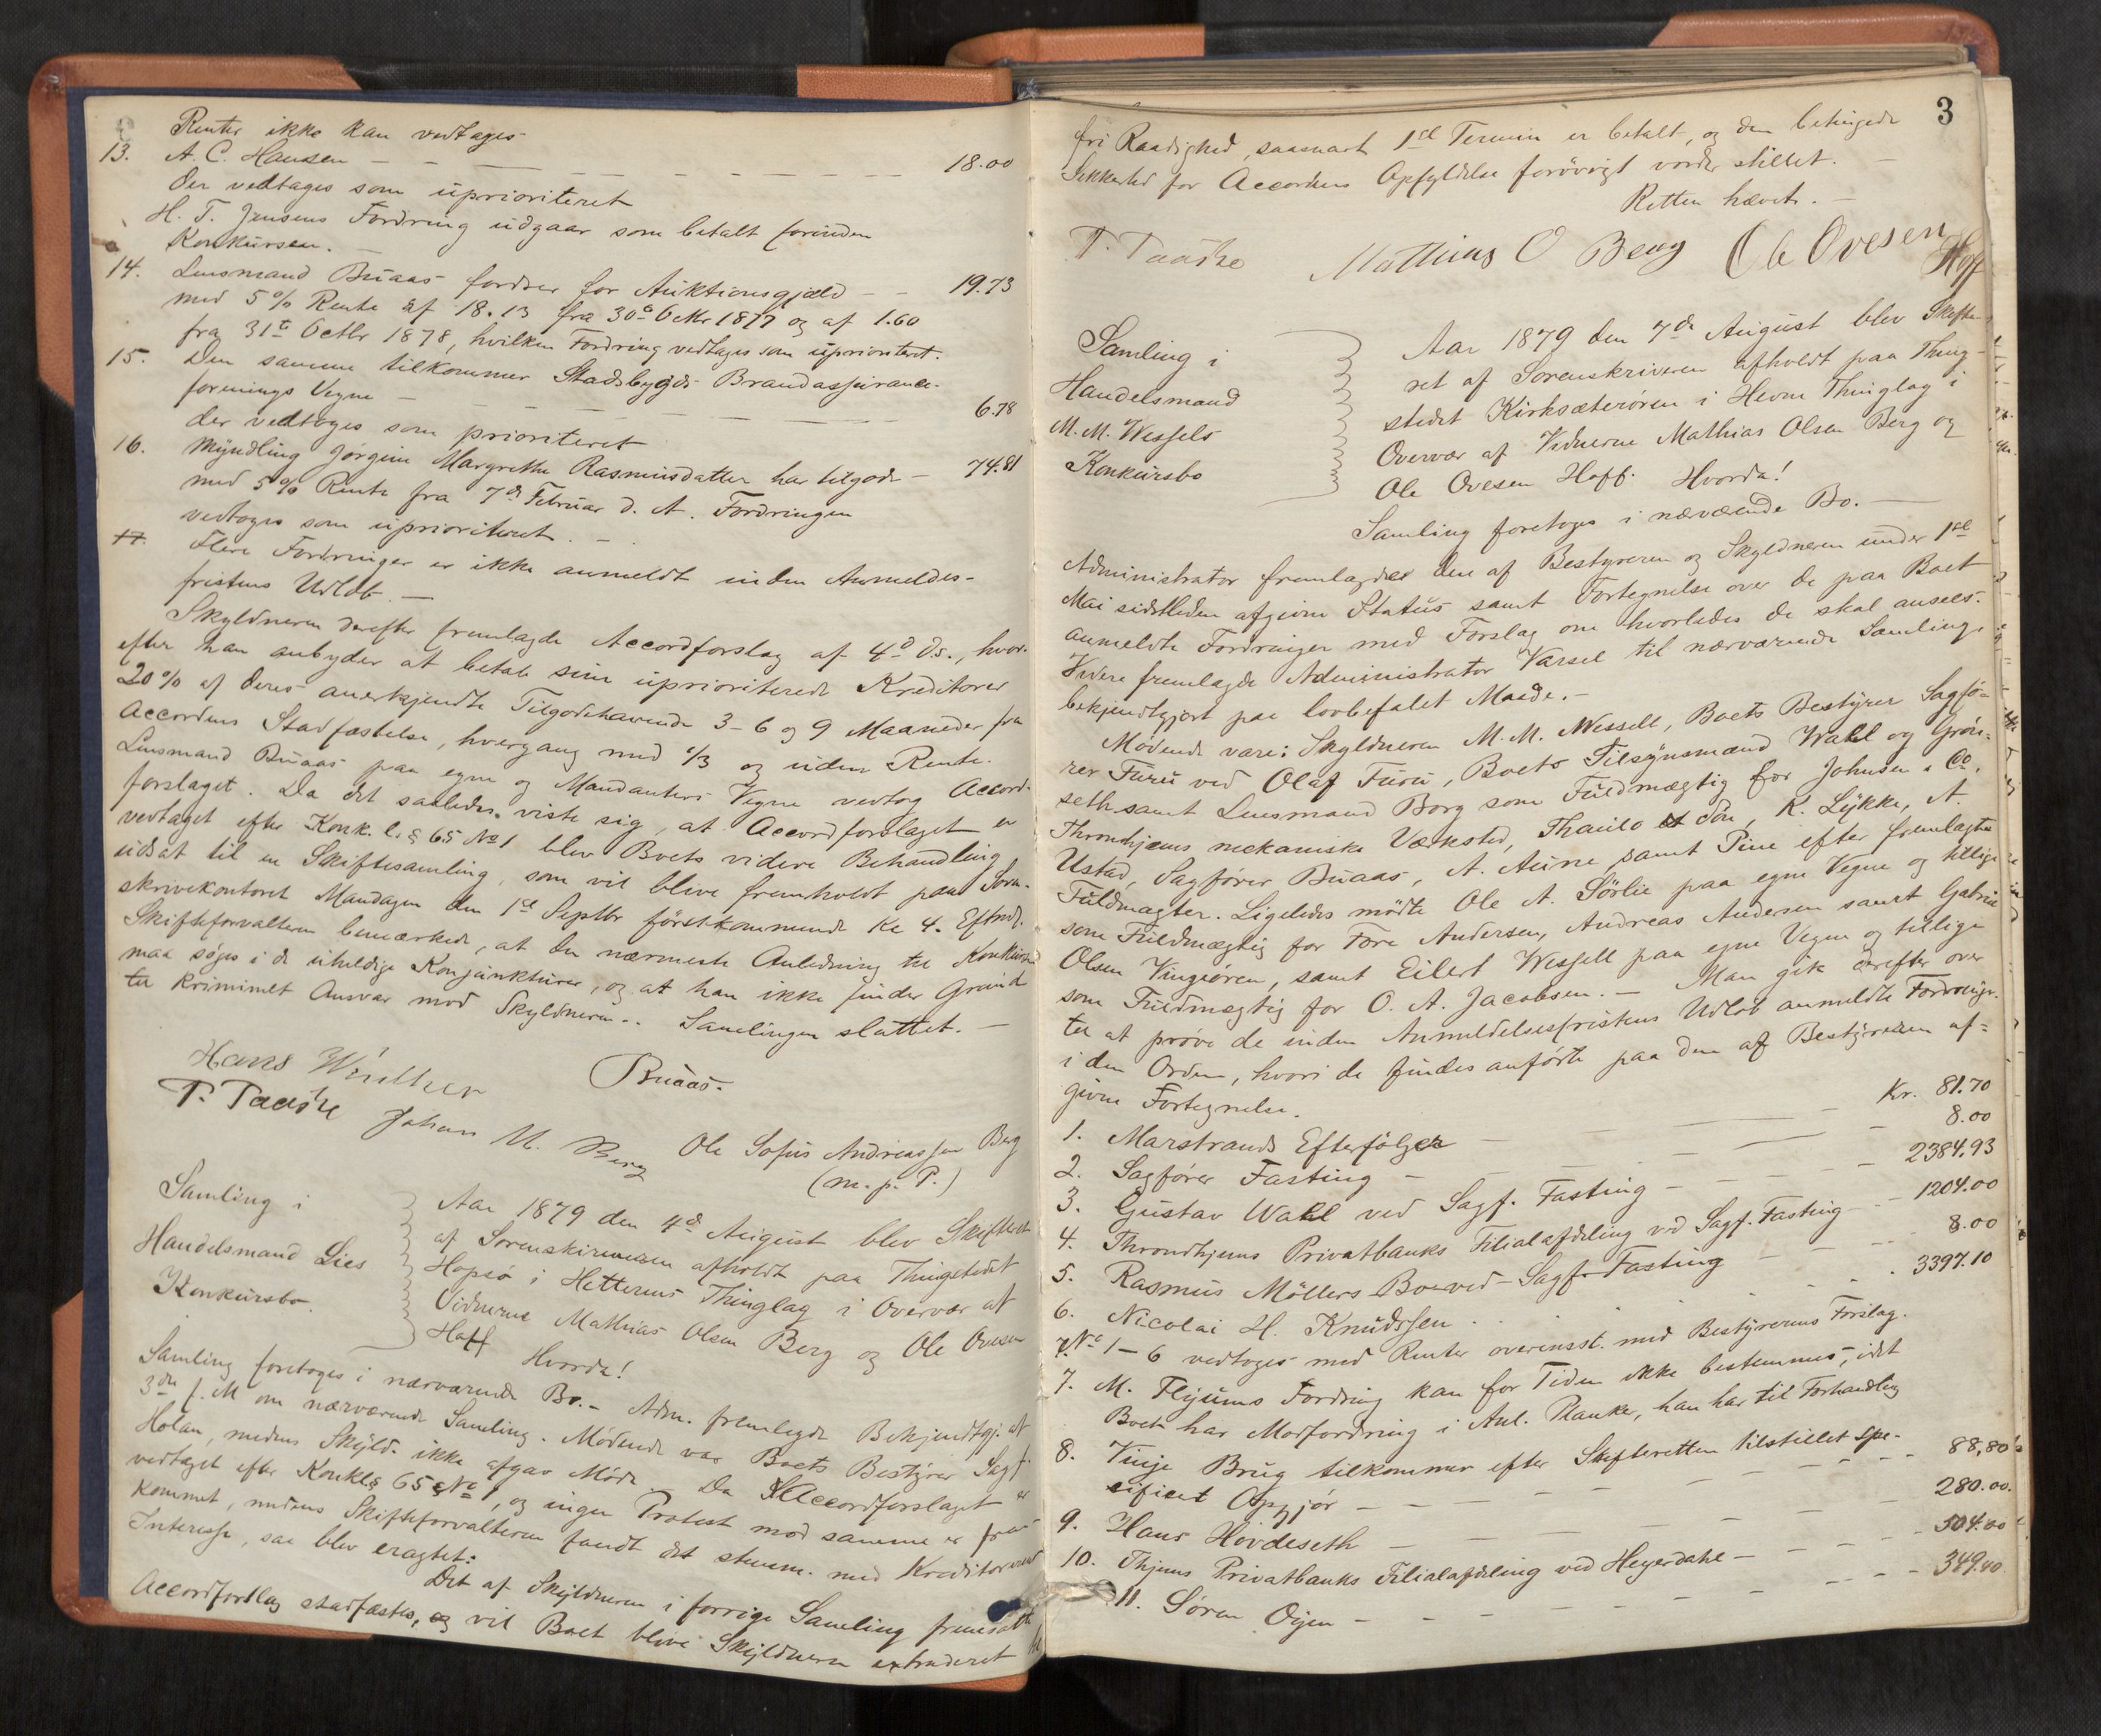 Renter ikke kan vedtages
13. A. C. Hansen - - - - - - - - - - 18.00
der vedtages som uprioriteret
H. T. Jensens Fordring udgaar som betalt forinden
Konkursen. -
14. Lensmand Buaas fordrer for Auktionsgjæld - - 19.73
med 5% Rente af 18.13 fra 30te Octbr 1877 og af 1.60
fra 31te Octbr 1878, hvilken Fordring vedtages som uprioriteret.
15. Den samme tilkommer Stadsbygds Brandassurance-
forenings Vegne - - - - - - - 6.78
der vedtages som prioriteret
16. Myndling Jørgine Margrethe Rasmusdatter har tilgode - 74.81
med 5% Rente fra 7de Februar d. A. Fordringen
vedtages som uprioriteret. -
17. Flere Fordringer er ikke anmeldt inden Anmeldes-
fristens Udløb. -
Skyldneren derefter fremlagde Accordforslag af 4de ds., hvor-
efter han anbyder at betale sine uprioriterede Kreditorer
20% af deres anerkjendte Tilgodehavende 3-6 og 9 Maaneder fra
Accordens Stadfæstelse, hvergang med 1/3 og uden Rente.
Lensmand Buaas paa egne og Mandanters Vegne vedtog Accord-
forslaget. Da det saaledes viste sig, at Accordforslaget er
vedtaget efter Konk. l. § 65 No 1 blev Boets videre Behandling
udsat til en Skiftesamling, som vil blive fremholdt paa Soren-
skriverkontoret Mandagen den 1ste Septbr førstkommende Kl 4. Eftmd.
Skifteforvalteren bemærkede, at den nærmeste Anledning til Konkursen
maa søges i de uheldige Konjunkturer, og at han ikke finder Grund
til kriminelt Ansvar mod Skyldneren.. Samlingen sluttet. -
Hans Winther Buaas.
P. Taaske Johan M. Berg Ole Sofus Andreassen Berg
(m. p. P.)
Samling i
Handelsmand Lies
Konkursbo.
Aar 1879 den 4de August blev Skifteret
af Sorenskriveren afholdt paa Thingstedet
Hopsø i Hitterens Thinglag i Overvær af
Vidnerne Mathias Olsen Berg og Ole Ovesen
Hoff Hvorda!
Samling foretoges i nærværende Bo. - Adm. fremlagde Bekjendtgj. af
3die f. M om nærværende Samling. Mødende var Boets Bestyrer Sagf.
Holan, medens Skyld. ikke afgav Møde. Da Accordforslaget er
vedtaget efter Konkl. § 65 No 1, og ingen Protest mod samme er frem-
kommet, medens Skifteforvalteren fandt det stemm. med Kreditorernes
Interesse, saa blev eragtet:
Det af Skyldneren i forrige Samling fremsatte
Accordforslag stadfæstes, og vil Boet blive Skyldneren extraderet til
3
fri Raadighed, saasnart 1ste Termin er betalt, og den betingede
Sikkerhed for Accordens Opfyldelse forøvrigt vorder stillet. -
Retten hævet. -
P. Taaske Mathias O Berg Ole Ovesen Hoff
Samling i
Handelsmand
M. M. Wessels
Konkursbo
Aar 1879 den 7de August blev Skifte-
ret af Sorenskriveren afholdt paa Thing-
stedet Kirksæterøren i Hevne Thinglag i
Overvær af Vidnerne Mathias Olsen Berg og
Ole Ovesen Hoff. Hvorda!
Samling foretoges i nærværende Bo. -
Administrator fremlagde den af Bestyreren og Skyldneren under 1ste
Mai sidstleden afgivne Status samt Fortegnelse over de paa Boet
anmeldte Fordringer med Forslag om hvorledes de skal ansees.
Videre fremlagde Administrator Varsel til nærværende Samling
bekjendtgjort paa lovbefalet Maade. -
Mødende vare: Skyldneren M. M. Wessell, Boets Bestyrer Sagfø-
rer Furu ved Olaf Furu, Boets Tilsynsmænd Wahl og Grøn-
seth samt Lensmand Borg som Fuldmægtig for Johnsen & Co,
Throndhjems mekaniske Værksted, Thaulo & Søn, K. Lykke, A.
Ustad, Sagfører Buaas, A. Aune samt Pine efter fremlagte
Fuldmagter. Ligeledes mødte Ole A. Sørlie paa egne Vegne og tillige
som Fuldmægtig for Tore Andersen, Andreas Andersen samt Gabriel
Olsen Vingøren, samt Eilert Wessell paa egne Vegne og tillige
som Fuldmægtig for O. A. Jacobsen. - Man gik derefter over
til at prøve de inden Anmeldelsesfristens Udløb anmeldte Fordringer
i den Orden, hvori de findes anførte paa den af Bestyreren af-
givne Fortegnelse.
1. Marstrands Efterfølger - - - Kr. 81.70
2. Sagfører Fasting - - - - 8.00
3. Gustav Wahl ved Sagf. Fasting - - - 2384.93
4. Throndhjems Privatbanks Filialafdeling ved Sagf. Fasting - 1204.00
5. Rasmus Møllers Bo ved Sagf. Fasting - - - 8.00
6. Nicolai H. Knudssen . . . . . . 3397.10
No 1-6 vedtoges med Renter overensst. med Bestyrerens Forslag.
7. M. Flyums Fordring kan for Tiden ikke bestemmes, idet
Boet har Modfordring i Anl. Planker, han har til Forhandling
8. Vinje Brug tilkommer efter Skifteretten tilstillet spe-
cificeret Opgjør - - - - - - - - 88,80
9. Hans Hovdeseth - - - - - - - 280.00.
10. Thjems Privatbanks Filialafdeling ved Heyerdahl - - - - 504.00
11. Søren Oyen - - - - - - - - - 349.40